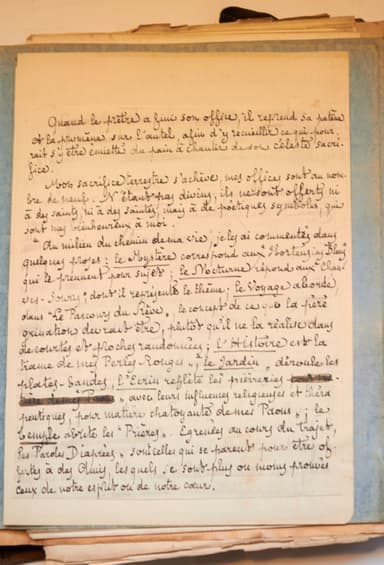 Quand le prêtre a fini son office, il reprend sa patène
et la promène sur l'autel, afin d'y recueillir ce qui pour-
rait s'y être émietté du pain à chanter de son céleste sacri-
fice.
Mon sacrifice terrestre s'achève, mes offices sont au nom-
bre de neuf. N'étant pas divins, ils ne sont offerts ni
à des saints, ni à des saintes, mais à de poétiques symboles, qui
sont mes bienheureux à moi.
"Au milieu du chemin de ma vie, je les ai commentés dans
quelques proses: le Mystère correspond aux "Hortensias Bleus"
qui le prennent pour sujet; le Nocturne répond aux "Chau-
ves-Souris" dont il représente le thème; le Voyage aborde,
dans "Le Parcours du Rêve", le concept de ce que la péré
grination devrait être, plutôt qu'il ne la réalise dans
de courtes et proches randonnées; l'Histoire est la
trame de mes "Perles-Rouges"; le Jardin, déroule les
plates-bandes, l'Écrin reflète les pierreries
avec leurs influences religieuses et théra
peutiques, pour matière chatoyante de mes "Paons"; le
Temple abrite les "Prières". Égrenées au cours du trajet,
les "Paroles Diaprées" sont celles qui se parent pour être of-
fertes à des Amis, lesquels se sont plus ou moins prouvés
ceux de notre esprit ou de notre cœur.